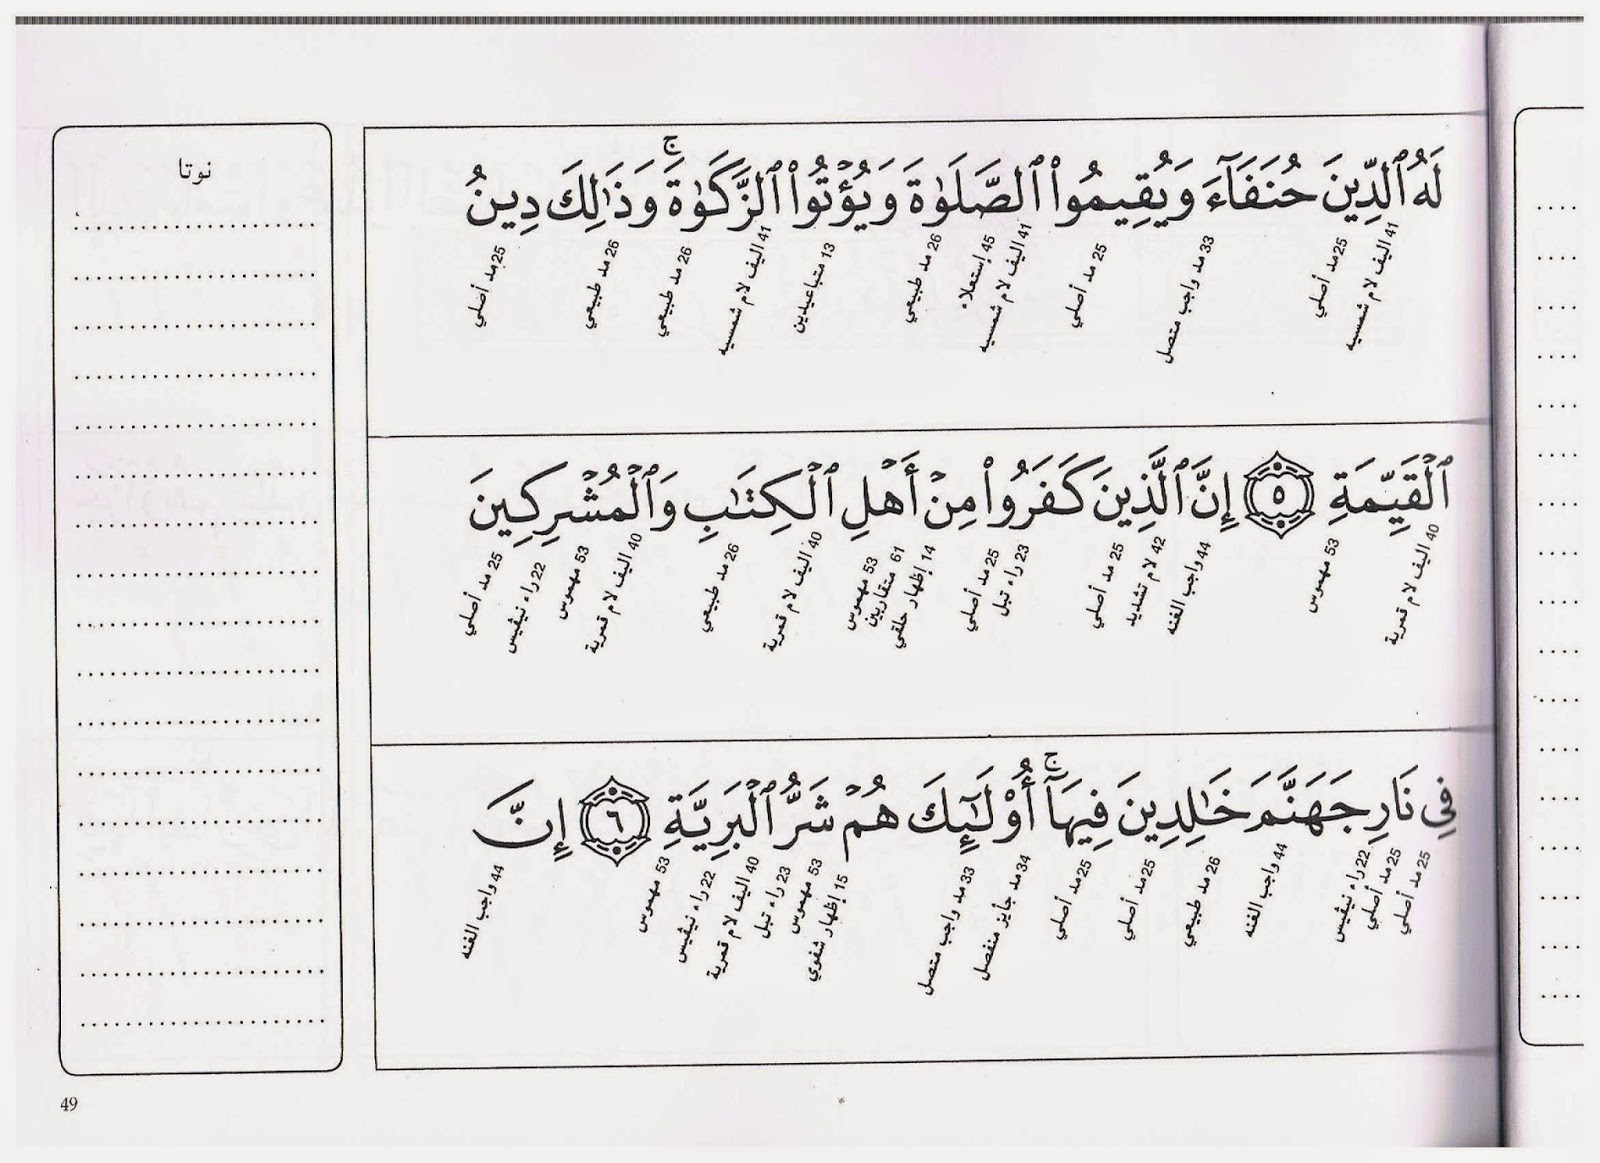 لَهُ ٱلدِّينَ حُنَفَآءَ وَيُقِيمُوا۟ ٱلصَّلَوٰةَ وَيُؤْتُوا۟ ٱلزَّكَوٰةَ ۚ وَذَٰلِكَ دِينُ
41 اليف لام شمسيه
25 مد أصلي
33 مد واجب متصل
25 مد أصلي
41 اليف لام شمسيه
45 إستعلاء
26 مد طبيعي
13 متباعيدين
41 اليف لام شمسيه
26 مد طبيعي
26 مد طبيعي
25 مد أصلي
ٱلْقَيِّمَةِ ٥ إِنَّ ٱلَّذِينَ كَفَرُوا۟ مِنْ أَهْلِ ٱلْكِتَٰبِ وَٱلْمُشْرِكِينَ
40 اليف لام قمرية
53 مهموس
44 واجب الغنه
42 لام تشديد
25 مد أصلي
23 راء تبل
25 مد أصلي
14 إظهار حلقي
61 متقاربين
53 مهموس
40 اليف لام قمرية
26 مد طبيعي
40 اليف لام قمرية
53 مهموس
22 راء نيڤيس
25 مد أصلي
فِى نَارِ جَهَنَّمَ خَٰلِدِينَ فِيهَآ ۚ أُو۟لَٰٓئِكَ هُمْ شَرُّ ٱلْبَرِيَّةِ ٦ إِنَّ
25 مد أصلي
25 مد أصلي
22 راء نيڤيس
44 واجب الغنه
26 مد طبيعي
25 مد أصلي
25 مد أصلي
34 مد جأيز منفصل
33 مد واجب متصل
15 إظهار شفوي
53 مهموس
23 راء تبل
40 اليف لام قمرية
22 راء نيڤيس
53 مهموس
44 واجب الغنه
نوتا
49